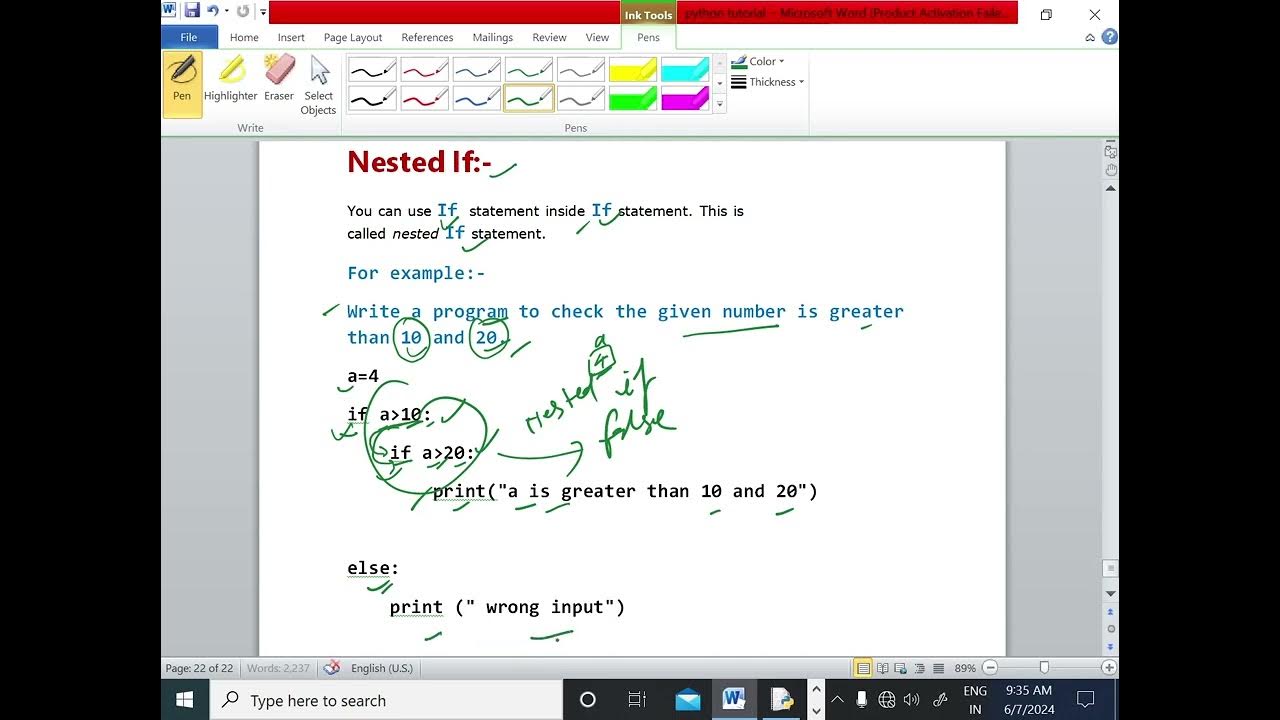 Ink Tools
python tutorial - Microsoft Word (Product Activation Faile...
File Home Insert Page Layout References Mailings Review View Pens
Pen Highlighter Eraser Select Objects
Color
Thickness
Write
Pens
Nested If:-
You can use If statement inside If statement. This is
called nested If statement.
For example:-
Write a program to check the given number is greater
than 10 and 20.
a
4
a=4
Nested if
if a>10:
false
if a>20:
print("a is greater than 10 and 20")
else:
print (" wrong input")
Page: 22 of 22 Words: 2,237 English (U.S.) 89%
Type here to search
ENG
IN
9:35 AM
6/7/2024